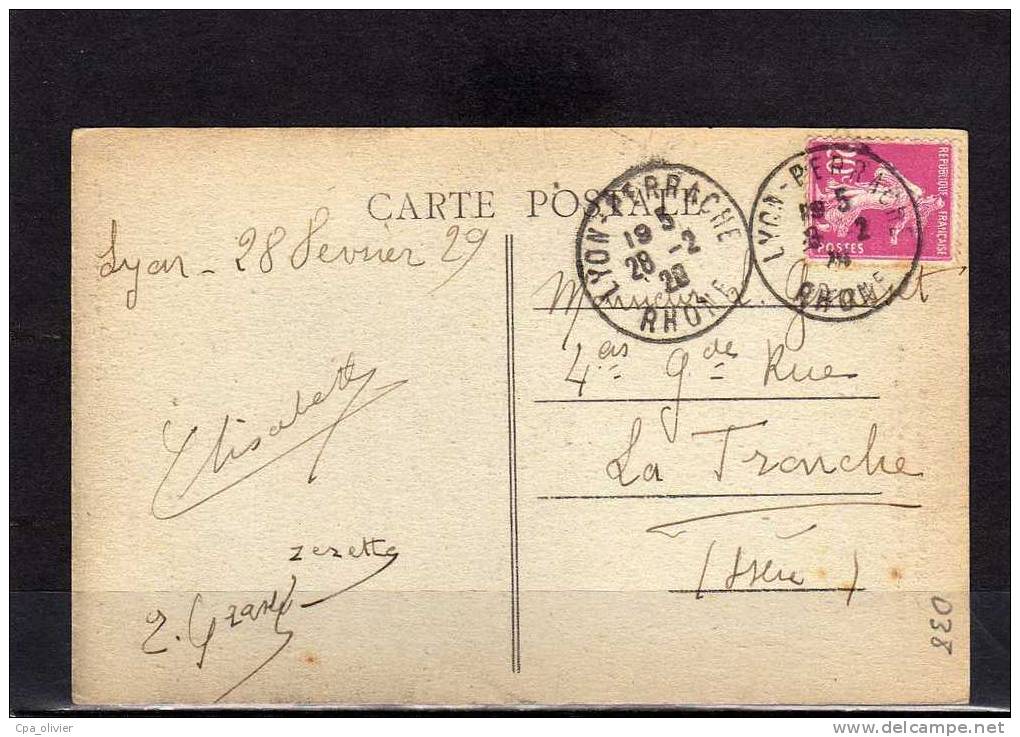 CARTE POSTALE
Lyon - 28 Fevrier 29
LYON-PERRACHE
19 5
28 -2
29
RHONE
LYON-PERRACHE
19 5
2
RHONE
REPUBLIQUE FRANÇAISE
POSTES
Monsieur
4 as gde Rue
La Tronche
(Isère)
Elisabeth
zezette
038
Cpa_olivier
www.delcampe.net